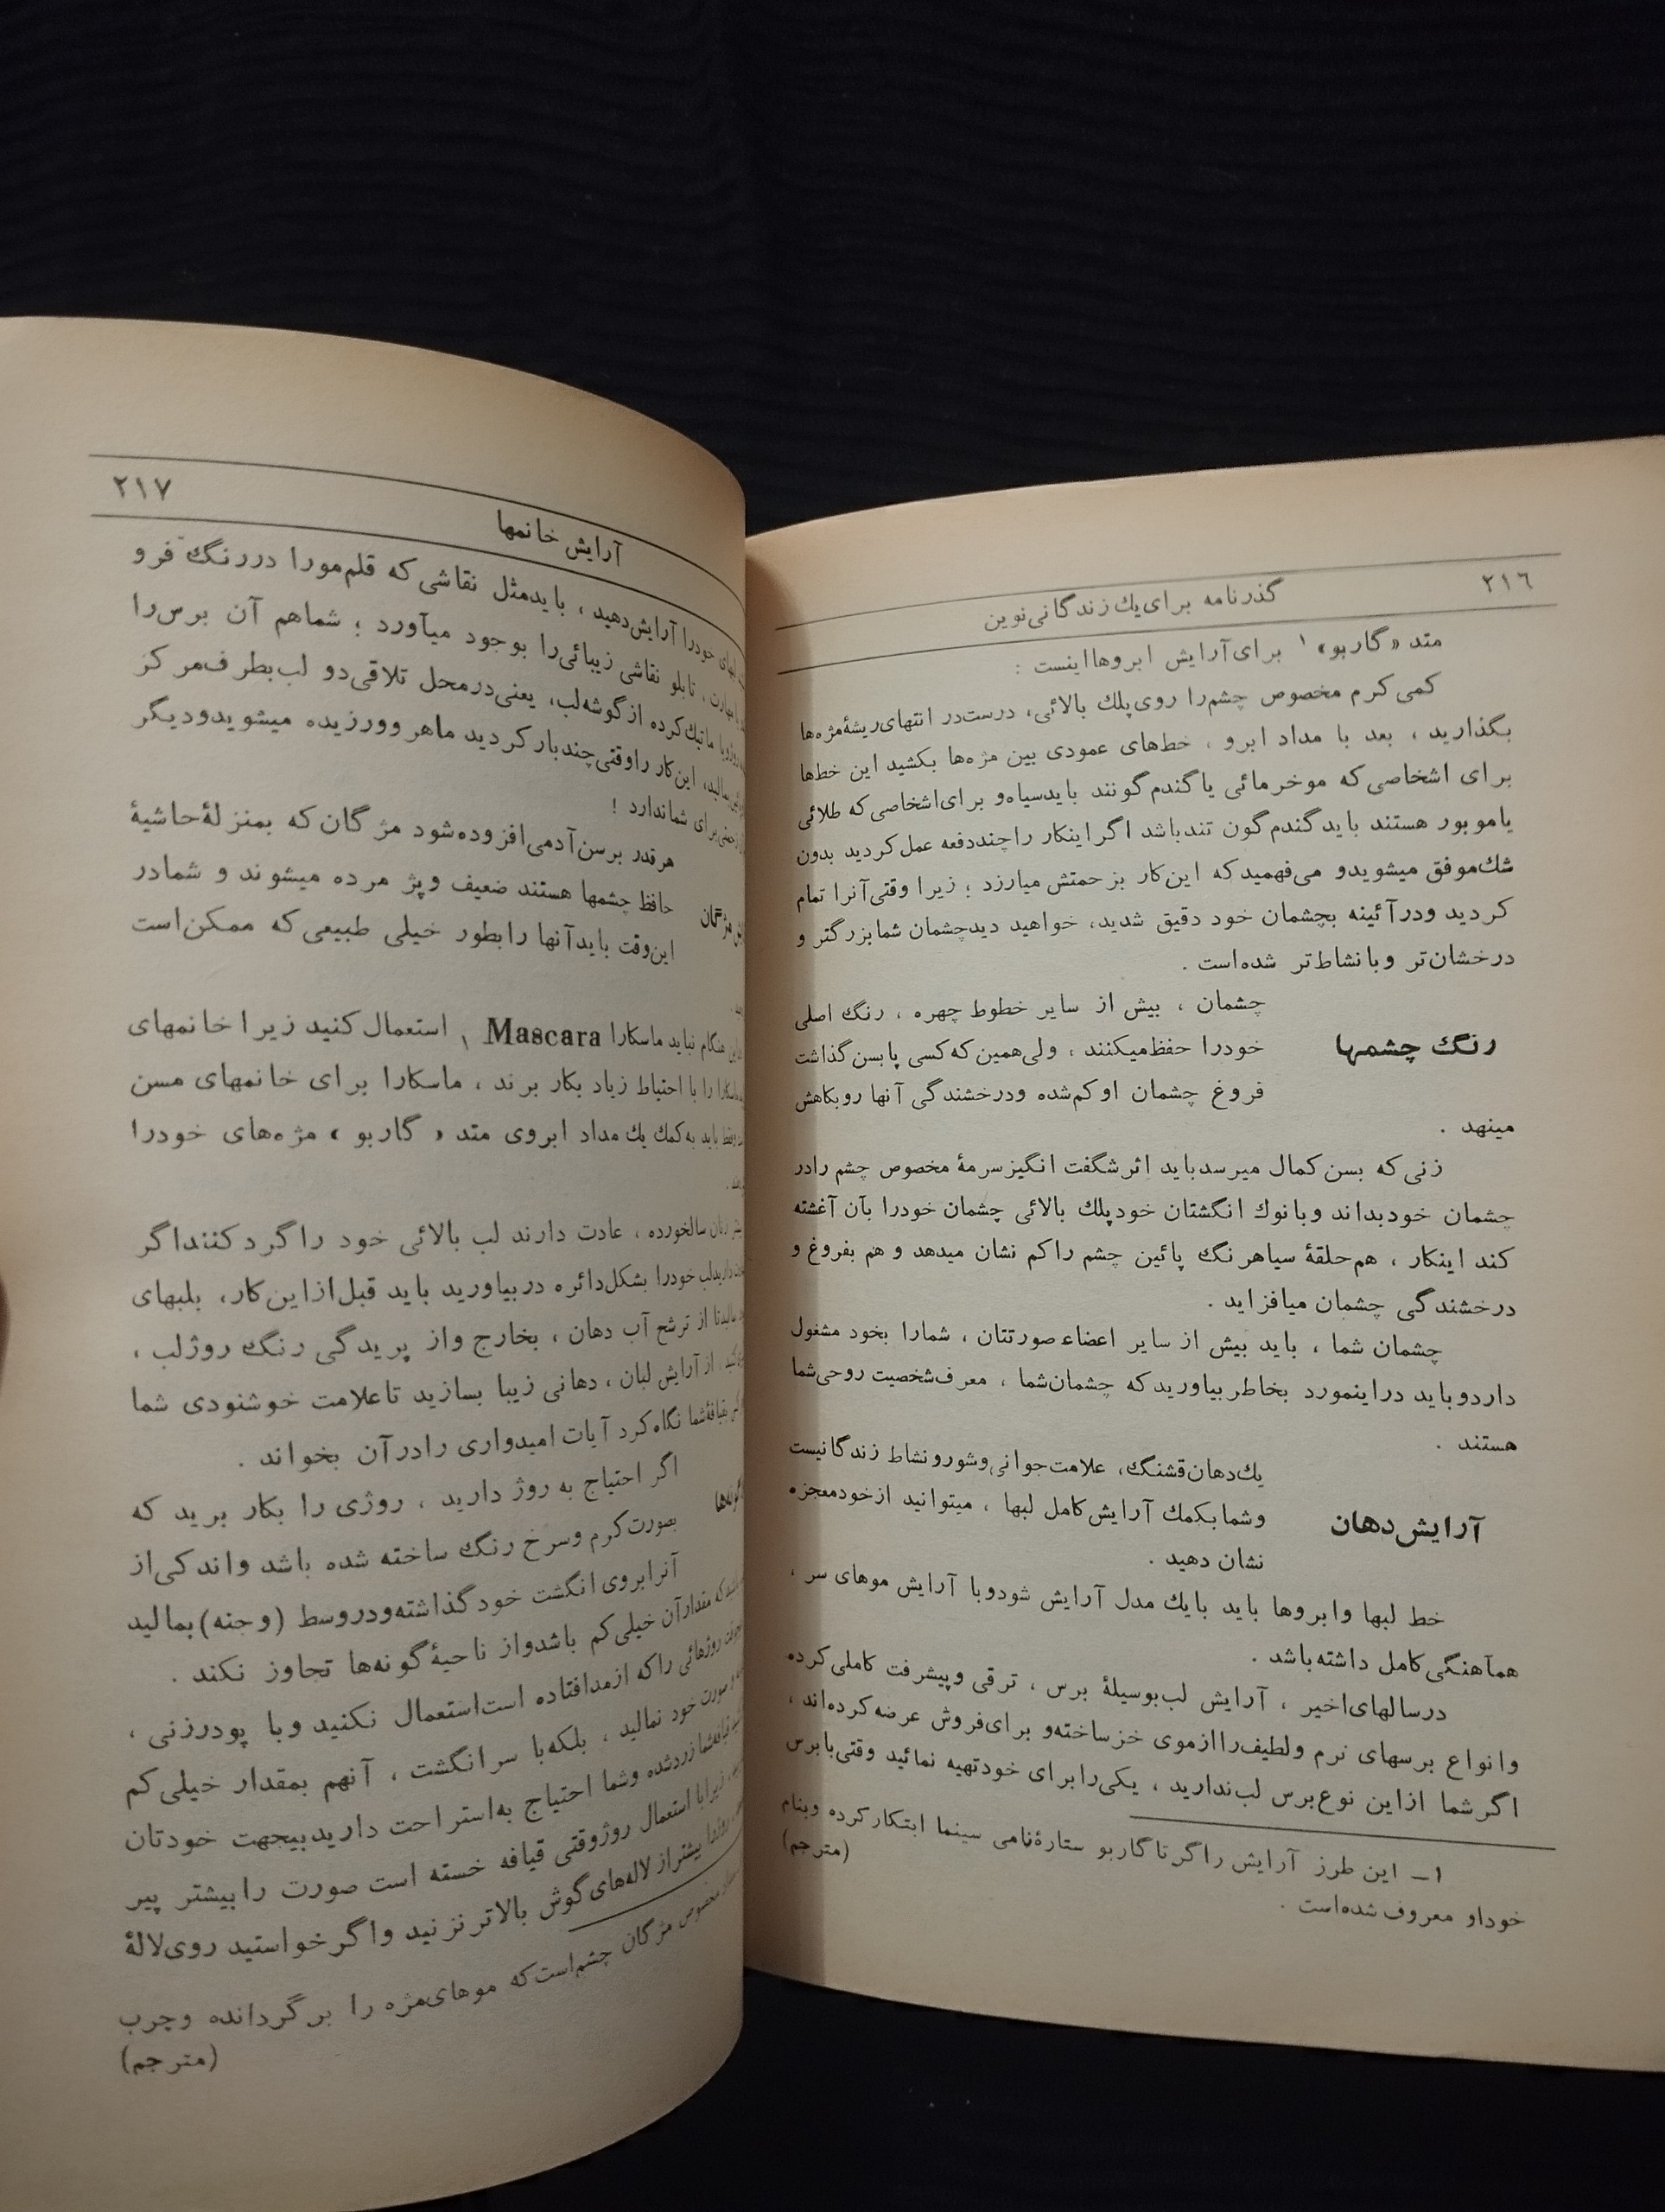 ٢١٦
گذرنامه برای یك زندگانی نوین
متد «گاربو» ١ برای آرایش ابروها اینست :
كمی كرم مخصوص چشم را روی پلك بالائی، درست در انتهای ریشهٔ مژه ها
بگذارید ، بعد با مداد ابرو ، خط های عمودی بین مژه ها بكشید این خط ها
برای اشخاصی كه مو خرمائی یا گندم گونند باید سیاه و برای اشخاصی كه طلائی
یا مو بور هستند باید گندم گون تند باشد اگر اینكار را چند دفعه عمل كردید بدون
شك موفق میشوید و می فهمید كه این كار بزحمتش میارزد ؛ زیرا وقتی آنرا تمام
كردید و در آئینه بچشمان خود دقیق شدید، خواهید دید چشمان شما بزرگتر و
درخشان تر و با نشاط تر شده است .
رنگ چشمها
چشمان ، بیش از سایر خطوط چهره ، رنگ اصلی
خود را حفظ میكنند ، ولی همین كه كسی پا بسن گذاشت
فروغ چشمان او كم شده و درخشندگی آنها رو بكاهش
مینهد .
زنی كه بسن كمال میرسد باید اثر شگفت انگیز سرمهٔ مخصوص چشم را در
چشمان خود بداند و با نوك انگشتان خود پلك بالائی چشمان خود را بآن آغشته
كند اینكار ، هم حلقهٔ سیاهرنگ پائین چشم را كم نشان میدهد و هم بفروغ و
درخشندگی چشمان میافزاید .
چشمان شما ، باید بیش از سایر اعضاء صورتتان ، شما را بخود مشغول
دارد و باید در اینمورد بخاطر بیاورید كه چشمان شما ، معرف شخصیت روحی شما
هستند .
آرایش دهان
یك دهان قشنگ، علامت جوانی و شور و نشاط زندگانیست
و شما بكمك آرایش كامل لبها ، میتوانید از خود معجزه
نشان دهید .
خط لبها و ابروها باید با یك مدل آرایش شود و با آرایش موهای سر ،
هم آهنگی كامل داشته باشد .
در سالهای اخیر ، آرایش لب بوسیلهٔ برس ، ترقی و پیشرفت كاملی كرده
و انواع برسهای نرم و لطیف را از موی خز ساخته و برای فروش عرضه كرده اند ،
اگر شما از این نوع برس لب ندارید ، یكی را برای خود تهیه نمائید وقتی با برس
١ـ این طرز آرایش را گرتا گاربو ستارهٔ نامی سینما ابتكار كرده و بنام
خود او معروف شده است .
(مترجم)
٢١٧
آرایش خانمها
لبهای خود را آرایش دهید ، باید مثل نقاشی كه قلم مو را در رنگ فرو
مهارت ، تابلو نقاشی زیبائی را بوجود میآورد ؛ شما هم آن برس را
ماتیك كرده از گوشه لب، یعنی در محل تلاقی دو لب بطرف مركز
بمالید، این كار را وقتی چند بار كردید ماهر و ورزیده میشوید و دیگر
زحمتی برای شما ندارد !
هر قدر بر سن آدمی افزوده شود مژگان كه بمنزلهٔ حاشیهٔ
مژگان
حافظ چشمها هستند ضعیف و پژمرده میشوند و شما در
این وقت باید آنها را بطور خیلی طبیعی كه ممكن است
هنگام نباید ماسكارا Mascara ١ استعمال كنید زیرا خانمهای
ماسكارا را با احتیاط زیاد بكار برند ، ماسكارا برای خانمهای مسن
فقط باید به كمك یك مداد ابروی متد « گاربو » مژه های خود را
زنان سالخورده ، عادت دارند لب بالائی خود را گرد كنند اگر
دارید لب خود را بشكل دائره در بیاورید باید قبل از این كار، بلبهای
بمالید تا از ترشح آب دهان ، بخارج و از پریدگی رنگ روژلب ،
از آرایش لبان ، دهانی زیبا بسازید تا علامت خوشنودی شما
بقیافهٔ شما نگاه كرد آیات امیدواری را در آن بخواند .
اگر احتیاج به روژ دارید ، روژی را بكار برید كه
گونه ها
بصورت كرم و سرخ رنگ ساخته شده باشد و اندكی از
آنرا بروی انگشت خود گذاشته و در وسط (وجنه) بمالید
كه مقدار آن خیلی كم باشد و از ناحیهٔ گونه ها تجاوز نكند .
روژهائی را كه از مد افتاده است استعمال نكنید و با پودرزنی ،
صورت خود نمالید ، بلكه با سر انگشت ، آنهم بمقدار خیلی كم
قیافه شما زرد شده و شما احتیاج به استراحت دارید بیجهت خودتان
زیرا با استعمال روژ وقتی قیافه خسته است صورت را بیشتر پیر
بیشتر از لاله های گوش بالاتر نزنید و اگر خواستید روی لالهٔ
مخصوص مژگان چشم است كه موهای مژه را برگردانده و چرب
(مترجم)